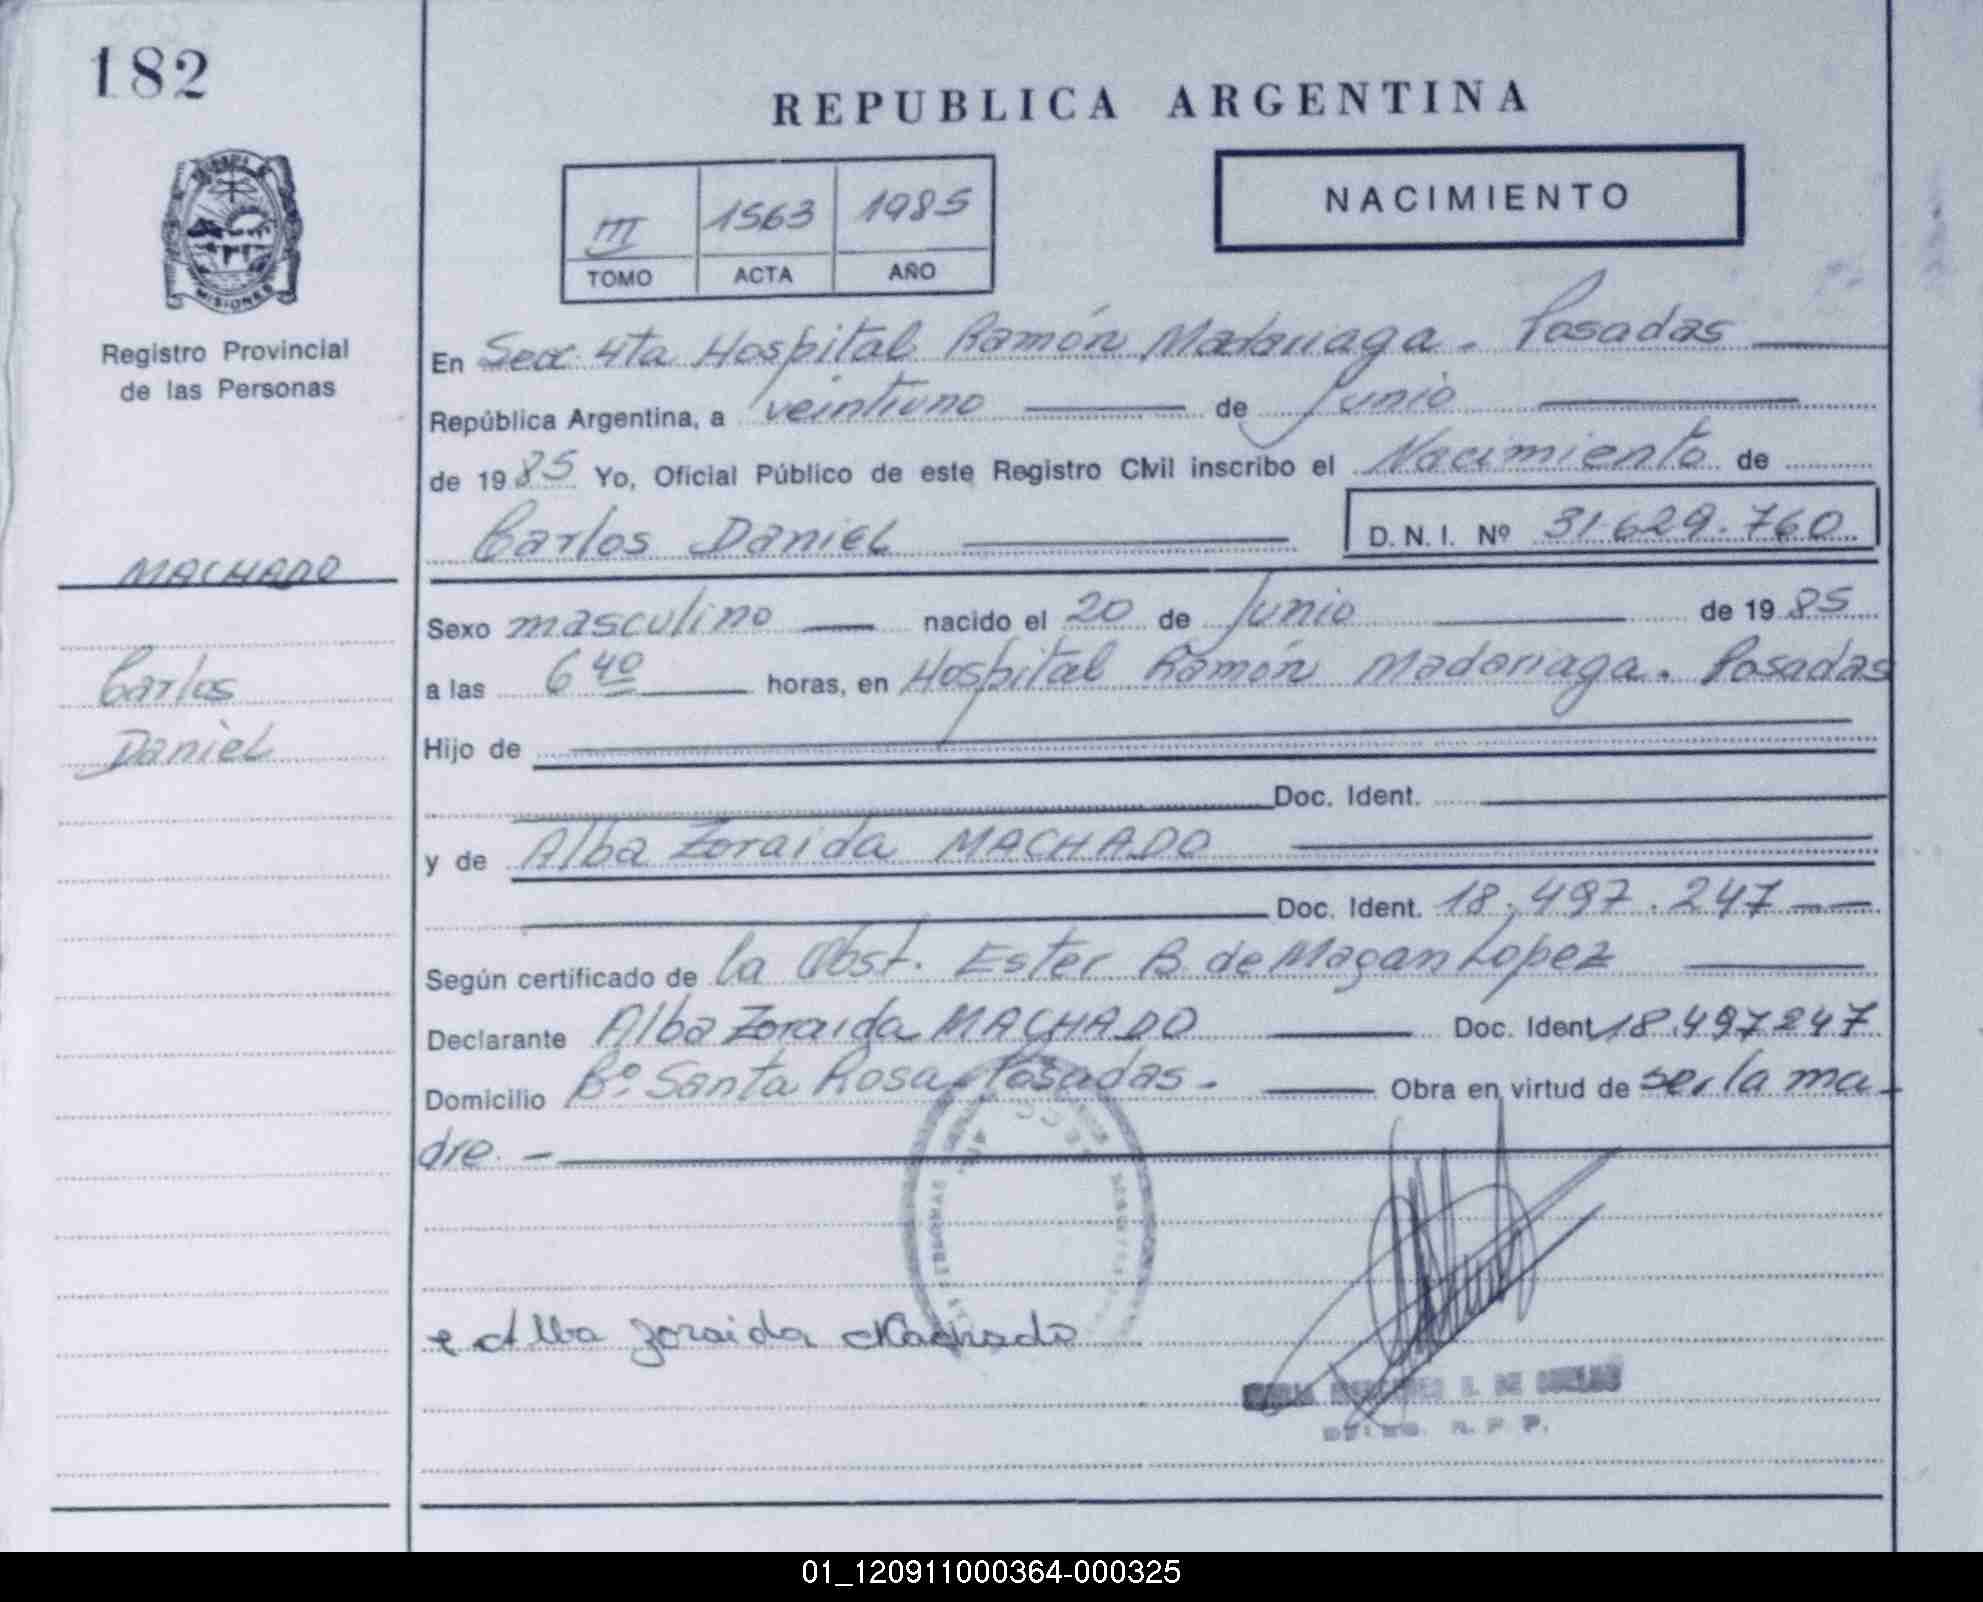 182
REPUBLICA ARGENTINA
III 1563 1985
TOMO ACTA AÑO
NACIMIENTO
MISIONES
Registro Provincial
de las Personas
En Secc 4ta Hospital Ramón Madariaga. Posadas
República Argentina, a veintiuno de Junio
de 1985 Yo, Oficial Público de este Registro Civil inscribo el Nacimiento de
Carlos Daniel D.N.I. Nº 31.629.760
MACHADO
Carlos
Daniel
Sexo masculino nacido el 20 de Junio de 1985
a las 6 40 horas, en Hospital Ramón Madariaga. Posadas
Hijo de
Doc. Ident.
y de Alba Zoraida MACHADO
Doc. Ident. 18.497.247
Según certificado de la Obst. Ester B. de Magan Lopez
Declarante Alba Zoraida MACHADO Doc. Ident. 18.497247
Domicilio Bº Santa Rosa. Posadas. Obra en virtud de ser la ma-
dre. -
Alba Zoraida Machado
R. P. P.
01_120911000364-000325